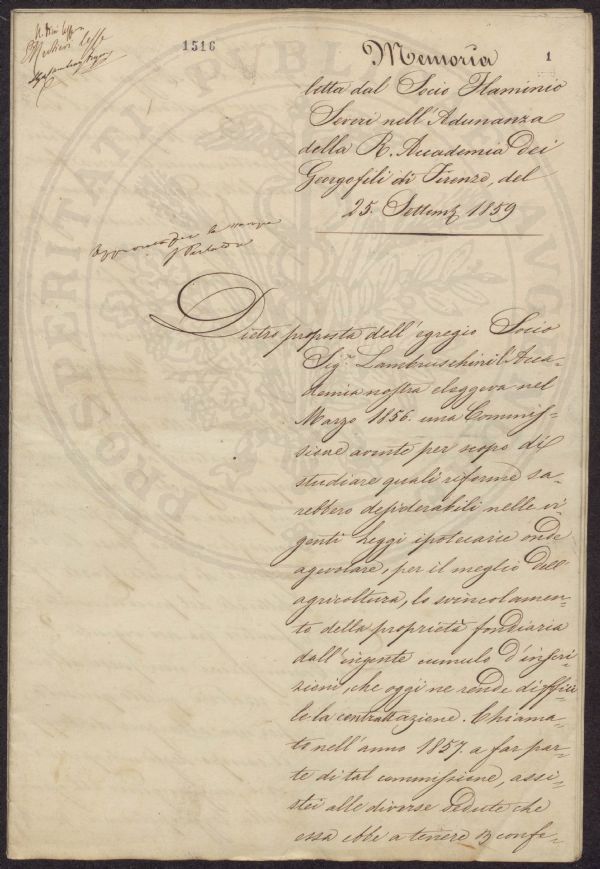 1516
1
Memoria
letta dal Socio Flaminio
Severi nell'Adunanza
della R. Accademia dei
Georgofili di Firenze, del
25. Settemb. 1859
Approvata per la stampa
Dietro proposta dell'egregio Socio
Sigr. Lambruschini l'Acca-
demia nostra eleggeva nel
Marzo 1856. una Commis-
sione avente per scopo di
studiare quali riforme sa-
rebbero desiderabili nelle vi-
genti Leggi ipotecarie onde
agevolare, per il meglio dell'
agricoltura, lo svincolamen-
to della proprietà fondiaria
dall'ingente cumulo d'inscri-
zioni, che oggi ne rende diffici-
le la contrattazione. Chiama-
to nell'anno 1857. a far par-
te di tal commissione, assi-
stei alle diverse sedute che
essa ebbe a tenere
PROSPERITATI PVBLICAE AVG